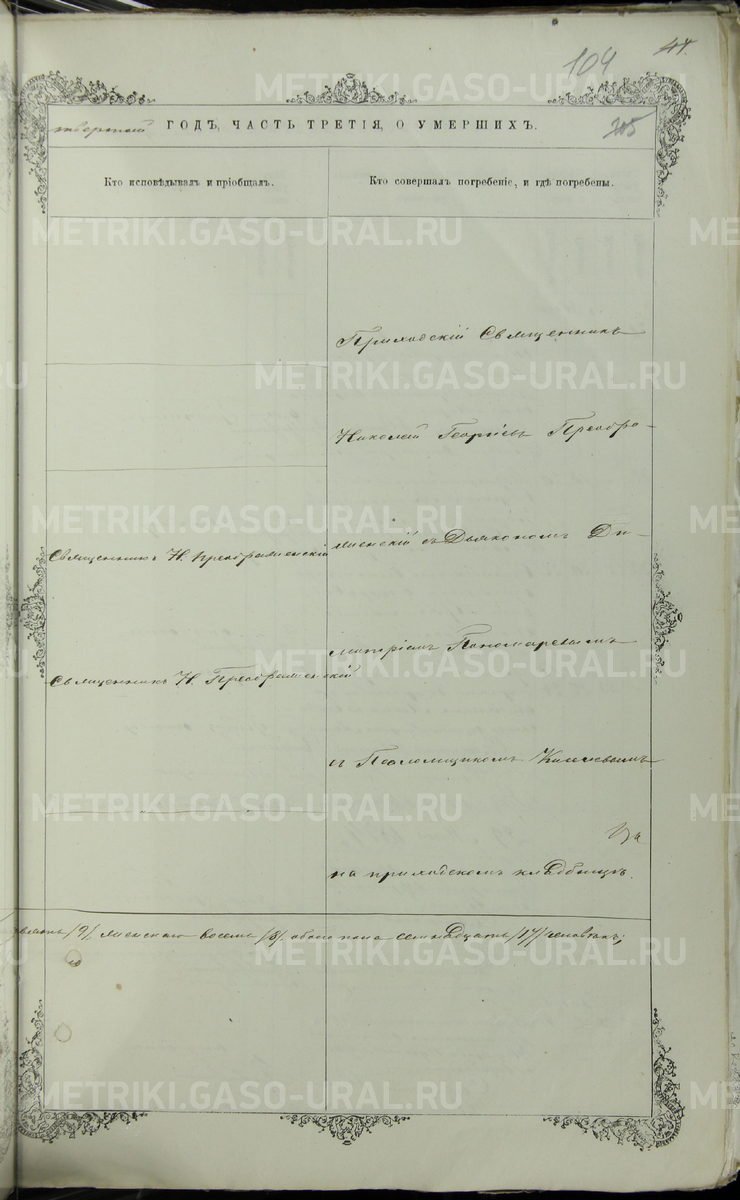 104 44.
четвертый ГОДЪ, ЧАСТЬ ТРЕТІЯ, О УМЕРШИХЪ. 205
Кто исповѣдывалъ и пріобщалъ.
Кто совершалъ погребеніе, и гдѣ погребены.
Приходскій Священникъ
Николай Георгіевъ Преобра-
женскій съ Дьякономъ Ди-
митріемъ Пономаревымъ
и Псаломщикомъ
на приходскомъ кладбищѣ.
Священникъ Н. Преображенскій
Священникъ Н. Преображенскій
/9/, женскаго восемь /8/, обоего пола семнадцать /17/ человѣкъ;
METRIKI.GASO-URAL.RU